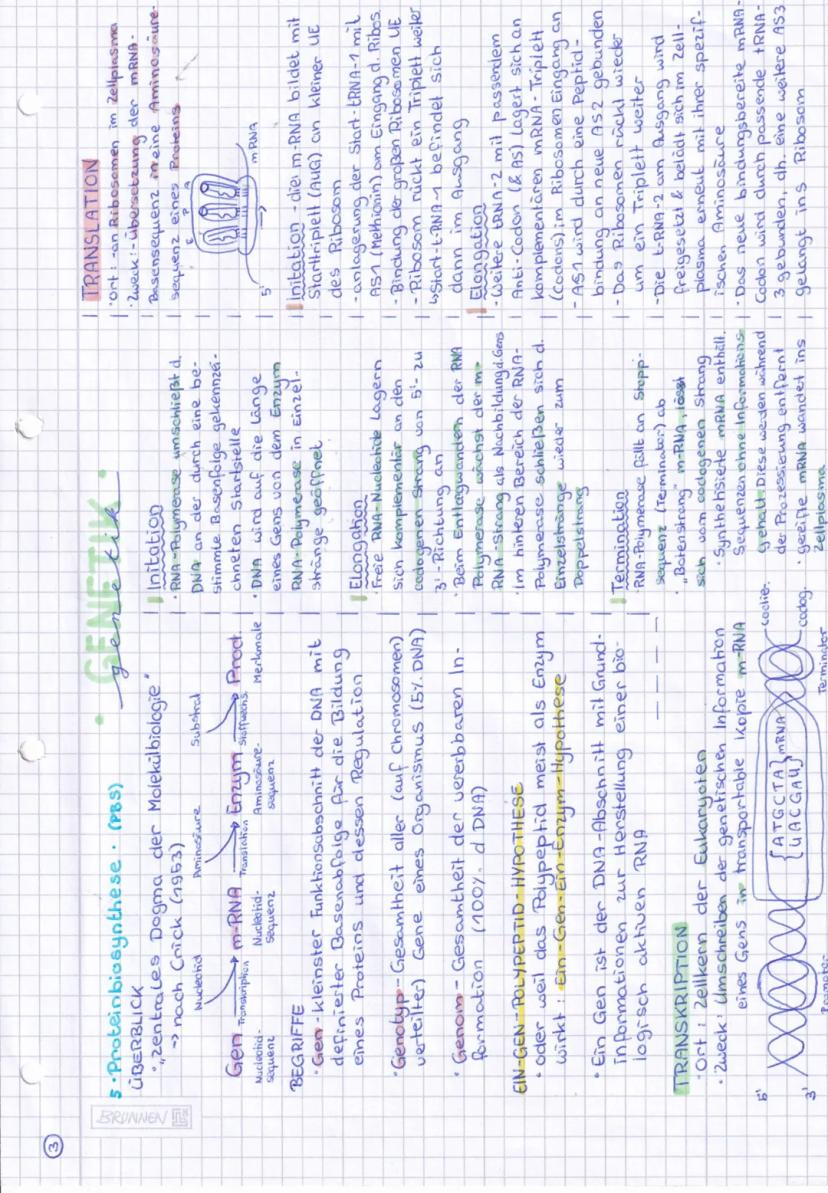 ③
BRUNNEN
• GENETIK •
genetik
5. Proteinbiosynthese. (PBS)
ÜBERBLICK
• "zentrales Dogma der Molekülbiologie"
→ nach Crick (1953)
Nucleotid Aminosäure Substrat
Gen Transkription m-RNA Translation Enzym Stoffwechs. Prod.
Nucleotid-sequenz Nucleotid-sequenz Aminosäure-sequenz Merkmale
BEGRIFFE
• Gen - kleinster Funktionsabschnitt der DNA mit
definierter Basenabfolge für die Bildung
eines Proteins und dessen Regulation
• Genotyp - Gesamtheit aller (auf Chromosomen)
verteilter) Gene eines Organismus (5% DNA)
• Genom - Gesamtheit der vererbbaren In-
formation (100% d DNA)
EIN-GEN-POLYPEPTID-HYPOTHESE
• oder weil das Polypeptid meist als Enzym
wirkt: Ein-Gen-Ein-Enzym-Hypothese
• Ein Gen ist der DNA-Abschnitt mit Grund-
informationen zur Herstellung einer bio-
logisch aktiven RNA
TRANSKRIPTION
• Ort: Zellkern der Eukaryoten
• Zweck: Umschreiben der genetischen Information
eines Gens in transportable Kopie m-RNA
5'
3'
{ATGCTA}
{UACGAU}
mRNA
codier.
codog.
Promotor
Terminator
Initation
• RNA-Polymerase umschließt d.
DNA an der durch eine be-
stimmte Basenfolge gekennzei-
chneten Startstelle
• DNA wird auf die Länge
eines Gens von dem Enzym
RNA-Polymerase in Einzel-
stränge geöffnet
Elongation
• Freie RNA-Nucleotide Lagern
sich komplementär an den
codogenen Strang von 5'- zu
3'-Richtung an
• Beim Entlagwandern der RNA
Polymerase wächst der m-
RNA-Strang als Nachbildung d. Gens
• Im hinteren Bereich der RNA-
Polymerase schließen sich d.
Einzelstränge wieder zum
Doppelstrang
Termination
• RNA-Polymerase fällt an Stopp-
sequenz (Terminator) ab
• "Botenstrang" m-RNA, löst
sich vom codogenen Strang
• Synthetisierte mRNA enthäll.
Sequenzen ohne Informations-
gehalt. Diese werden während
der Prozessierung entfernt
• gereifte mRNA wandet ins
Zellplasma
TRANSLATION
• Ort: - an Ribosomen im Zellplasma
• Zweck: - Übersetzung der mRNA-
Basensequenz in eine Aminosäure-
sequenz eines Proteins
E P A
5'
mRNA
Initation - die m-RNA bildet mit
Starttriplett (AUG) an kleiner UE
des Ribosom
- anlagerung der Start-tRNA-1 mit
AS1 (Methionin) am Eingang d. Ribos.
- Bindung der großen Ribosomen UE
- Ribosom rückt ein Triplett weiter
↳ Start-t-RNA-1 befindet sich
dann im Ausgang
Elongation
- Weitere tRNA-2 mit passendem
Anti-Codon (& AS) lagert sich an
komplementären mRNA-Triplett
(Codons) im Ribosomen Eingang an
- AS1 wird durch eine Peptid-
bindung an neue AS2 gebunden
- Das Ribosomen rückt wieder
um ein Triplett weiter
- Die t-RNA-2 am Ausgang wird
freigesetzt & belädt sich im Zell-
plasma erneut mit ihrer spezif-
ischen Aminosäure
• Das neue bindungsbereite mRNA-
Codon wird durch passende tRNA-
3 gebunden, dh. eine weitere AS3
gelangt ins Ribosom